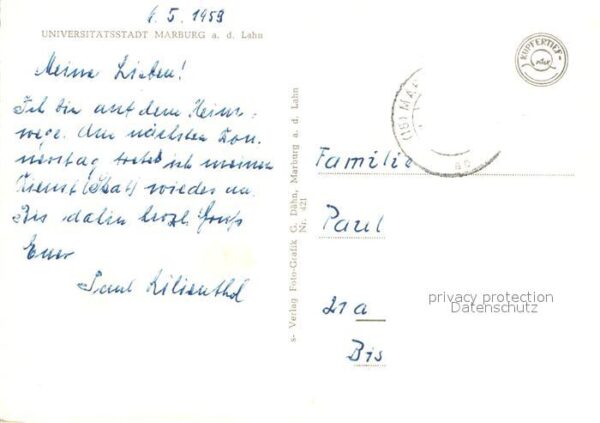 6. 5. 1959
UNIVERSITÄTSSTADT MARBURG a. d. Lahn
Meine Lieben!
Ich bin auf dem Heim-
wege. Am nächsten Don-
nerstag trete ich meinen
Dienst wieder an.
Bis dahin herzl. Gruß
Euer
Paul Lilienthal
s- Verlag Foto-Grafik G. Dähn, Marburg a. d. Lahn
Nr. 421
KUPFERTIEF-
(16) MA
Familie
Paul
21a
Bis
privacy protection
Datenschutz